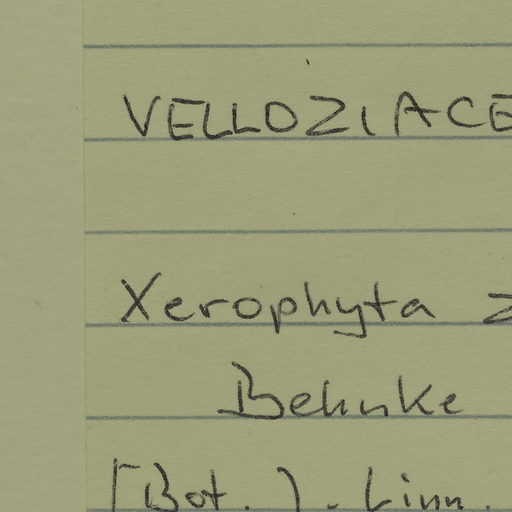 VELLOZIACE
Xerophyta z
Behnke
[Bot.). Linn.